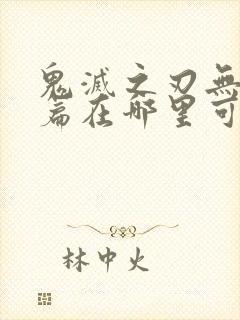 鬼滅之刃無
篇在哪里可
林中火